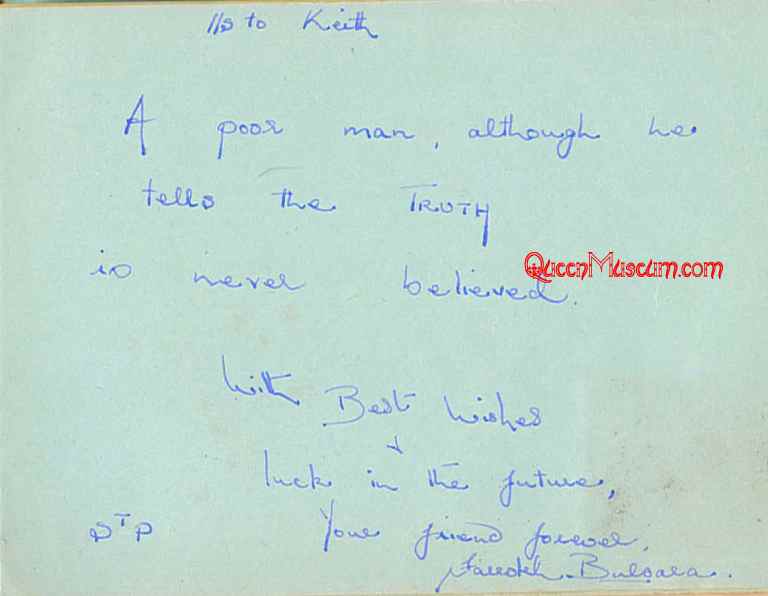 to Keith
A poor man, although he
tells the TRUTH
is never believed.
QueenMuseum.com
With Best Wishes
+
luck in the future,
STP Your friend forever,
Farrokh Bulsara.